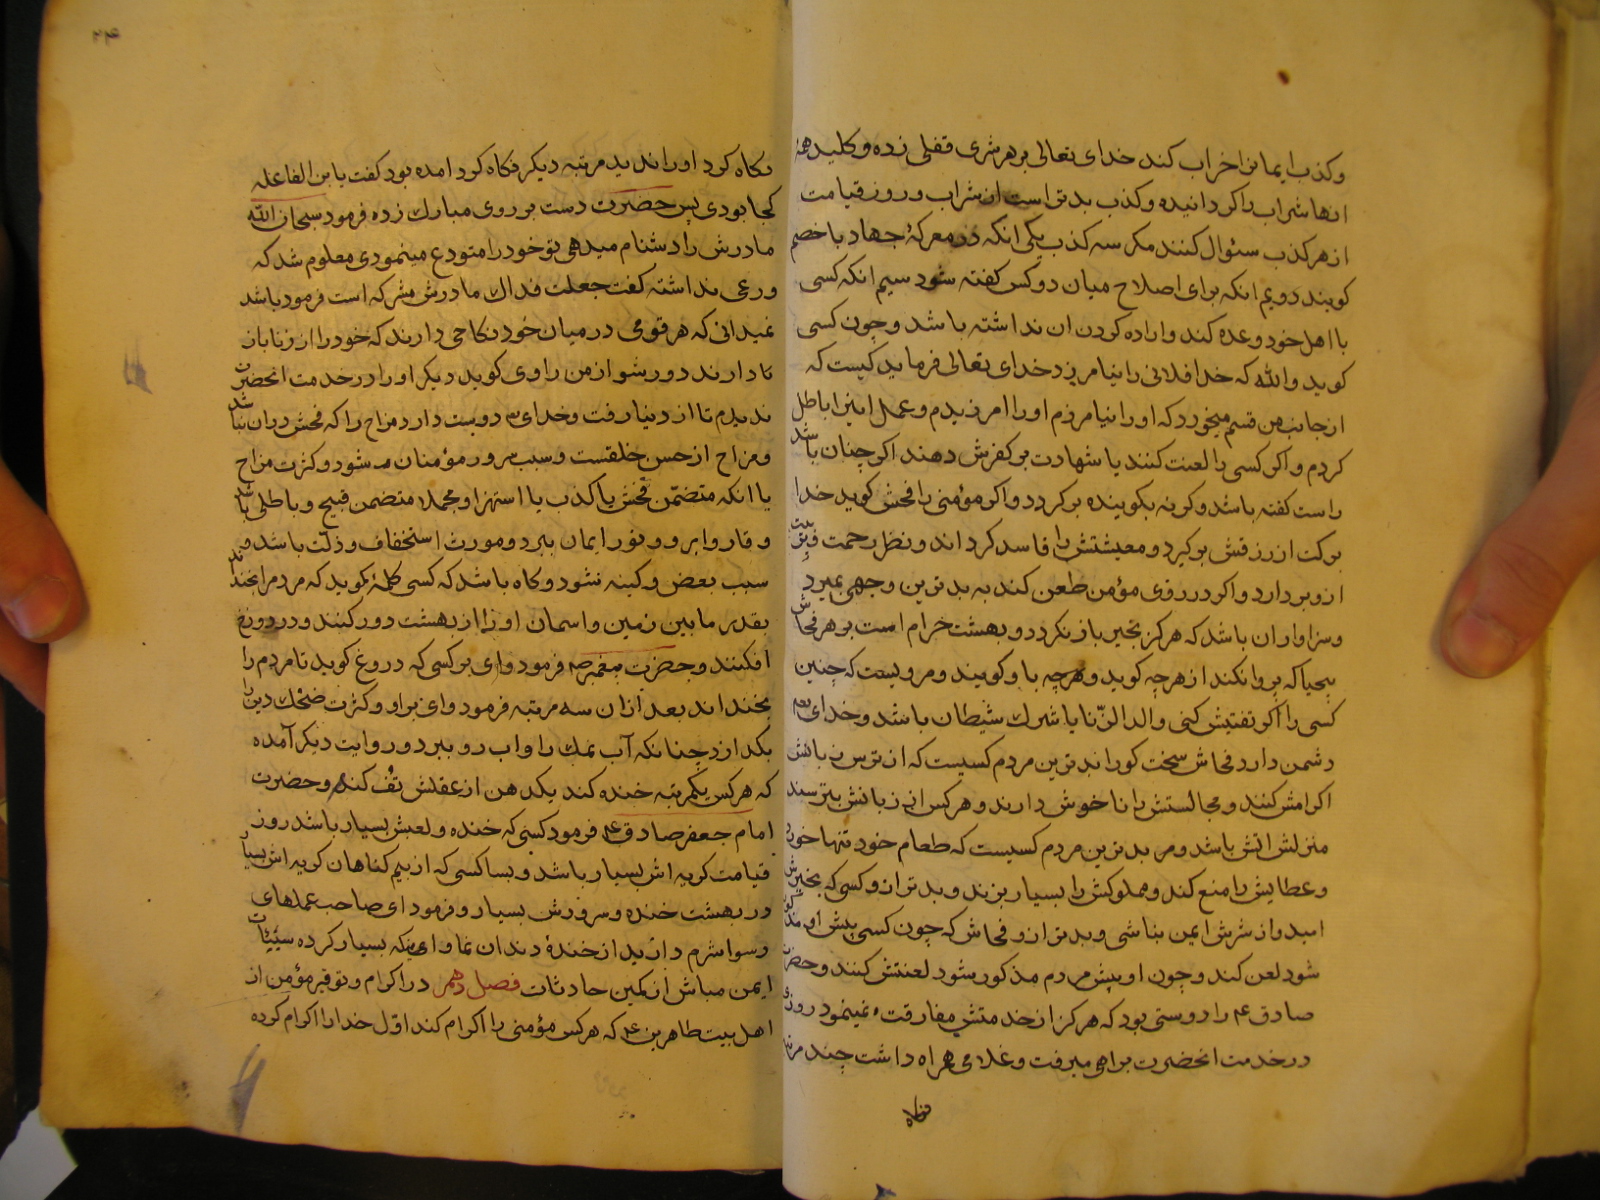 وکذب ایمانرا خراب کند خدای تعالی بر هر شری قفلی زده وکلید همه
انها شراب را کردانیده وکذب بدتر است از شراب و روز قیامت
از هر کذب سئوال کنند مکر سه کذب یکی انکه در معرکهٔ جهاد با خصم
کویند دویم انکه برای اصلاح میان دو کس کفته شود سیم انکه کسی
با اهل خود وعده کند واراده کردن ان نداشته باشد و چون کسی
کوید والله که خدا فلانی را نیامرزد خدای تعالی فرماید کیست که
از جانب من قسم میخورد که او را نیامرزم او را امرزیدم وعمل اینرا باطل
کردم و اکر کسی را لعنت کنند یا شهادت بر کفرش دهند اکر چنان باشد
راست کفته باشد وکرنه بکوینده برکردد و اکر مؤمنی را فحش کوید خدا
برکت از رزقش برکیرد و معیشتش را فاسد کرداند و نظر رحمت
ازو بردارد و اکر در روی مؤمن طعن کند به بدترین وجهی بمیرد
وسزاوار ان باشد که هرکز بخیر باز نکردد و بهشت حرام است بر هر فحاش
بیحیا که پروا نکند از هرچه کوید و هرچه باو کویند و مرویست که چنین
کسی را اکر تفتیش کنی ولد الزّنا یا شرک شیطان باشد وخدای تع
دشمن دارد فحاش سخت کو را بدترین مردم کسیست که از ترس زبانش
اکرامش کنند و مجالستش را ناخوش دارند و هر کس از زبانش بترسند
منزلش اتش باشد و مر بدترین مردم کسیست که طعام خود تنها خورد
وعطایش را منع کند ومملوکش را بسیار بزند و بدتر از و کسی که بخیرش
امید و از شرش ایمن نباشی و بدتر ازو فحاش که چون کسی پیش او مذکور
شود لعن کند و چون او پیش مردم مذکور شود لعنتش کنند و حضرت
صادق ع را دوستی بود که هرکز از خدمتش مفارقت نمینمود روزی
در خدمت انحضرت براهی میرفت و غلامی همراه داشت چند مرتبه
نکاه
۲۴
نکاه کرد او را ندید مرتبه دیکر نکاه کرد امده بود کفت یابن الفاعله
کجا بودی پس حضرت دست بر روی مبارک زده فرمود سبحان الله
مادرش را دشنام میدهی تو خود را متودع مینمودی معلوم شد که
ورعی نداشته کفت جعلت فداک مادرش مشرکه است فرمود باشد
نمیدانی که هر قومی در میان خود نکاحی دارند که خود را از زنا باز
دارند دور شو از من راوی کوید دیکر او را در خدمت انحضرت
ندیدم تا از دنیا رفت وخدای تع دوست دارد مزاح را که فحش دران نباشد
ومزاح از حسن خلقست وسبب سرور مؤمنان مے شود و کثرت مزاح
یا انکه متضمّن فحش یا کذب یا استهزا و مجملا متضمن قبیح و باطلی باشد
وقار و ابرو و نور ایمان ببرد و مورث استخفاف و ذلّت باشد و
سبب بعض وکینه نشود وکاه باشد که کسی کلمهٔ کوید که مردم را بخنداند
بقدر مابین زمین و اسمان او را از بهشت دور کنند و در دوزخ
افکنند و حضرت پیغمبر ص فرمود وای بر کسی که دروغ کوید تا مردم را
بخنداند بعد ازان سه مرتبه فرمود وای بر او و کثرت ضحک دین را
بکدازد چنانکه آب نمک را و اب رو ببرد و روایت دیکر آمده
که هر کس یکمرتبه خنده کند یکدهن از عقلش تُف کند و حضرت
امام جعفر صادق ع فرمود کسی که خنده و لعبش بسیار باشد روز
قیامت کریه اش بسیار باشد و بسا کسی که از بیم کناهان کریه اش بسیار
در بهشت خنده و سرورش بسیار و فرمود ای صاحب عملهای
رسوا شرم دار ازید از خندهٔ دندان نما و ای انکه بسیار کرده سیّئات
ایمن مباش از کمین حادثات فصل دهم در اکرام و توقیر مؤمن از
اهل بیت طاهرین ع که هر کس مؤمنی را اکرام کند اوّل خدا را اکرام کرده